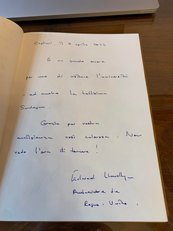 È un grande onore
per me di visitare l'università
ed anche la bellissima
Grazie per vostra
accoglienza così calorosa. Non
vedo l'ora di tornare!
Edward Llewellyn
Ambasciatore del
Regno Unito.